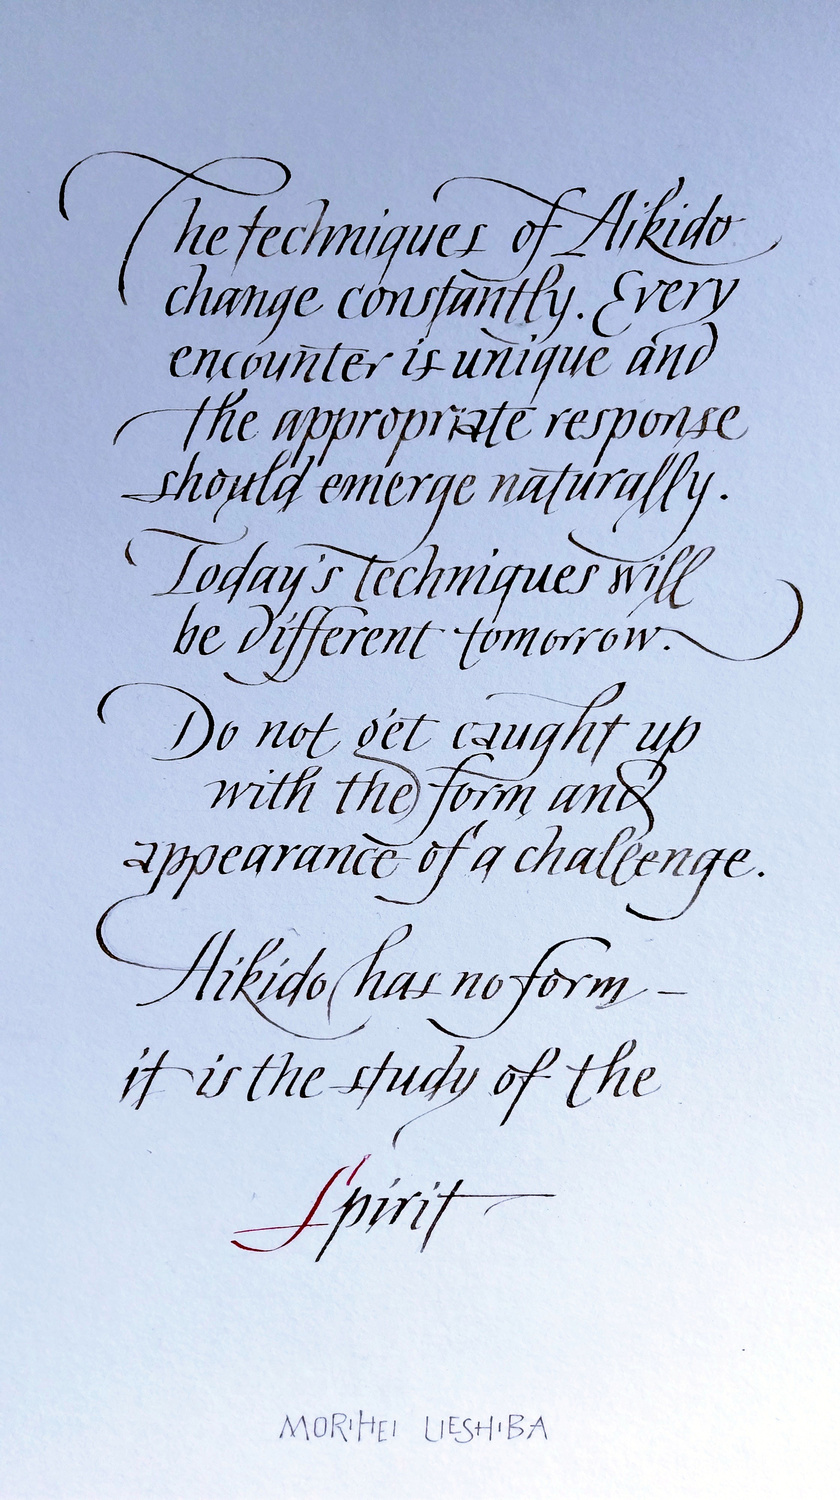 The techniques of Aikido
change constantly. Every
encounter is unique and
the appropriate response
should emerge naturally.
Today's techniques will
be different tomorrow.
Do not get caught up
with the form and
appearance of a challenge.
Aikido has no form –
it is the study of the
Spirit
MORIHEI UESHIBA